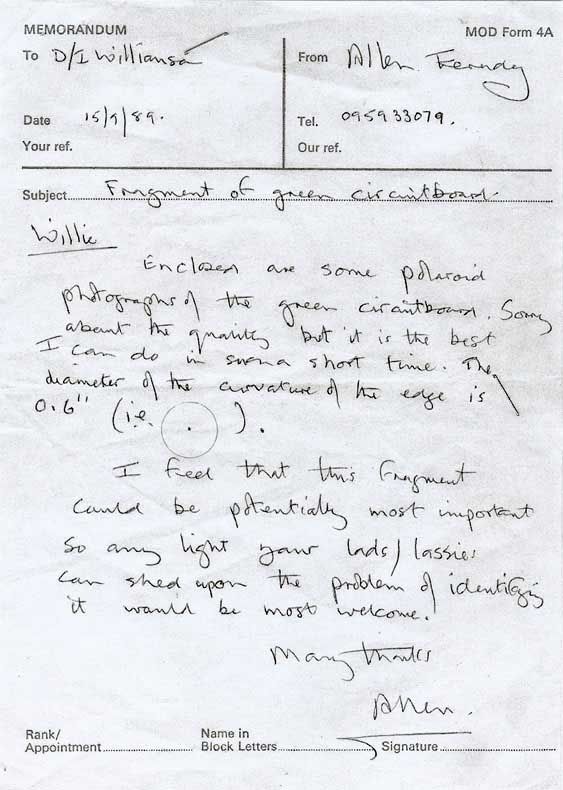 MEMORANDUM
MOD Form 4A
To D/I Williamson
From Allen Feraday
Date 15/9/89.
Tel. 095933079.
Your ref.
Our ref.
Subject Fragment of green circuitboard.
Willie
Enclosed are some polaroid
photographs of the green circuitboard. Sorry
about the quality but it is the best
I can do in such a short time. The
diameter of the curvature of the edge is
0.6" (i.e. ).
I feel that this fragment
could be potentially most important
so any light your lads/lassies
can shed upon the problem of identifying
it would be most welcome.
Many thanks
Allen.
Rank/
Appointment
Name in
Block Letters
Signature